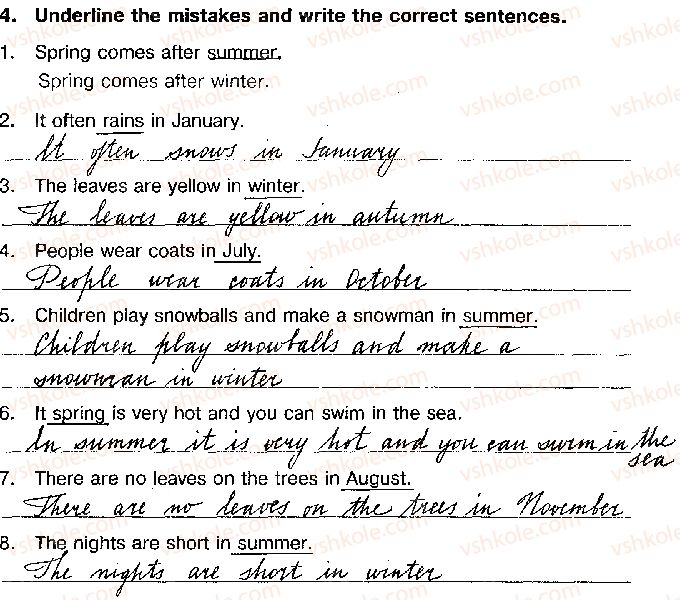 4. Underline the mistakes and write the correct sentences.
1. Spring comes after summer.
Spring comes after winter.
2. It often rains in January.
It often snows in January
3. The leaves are yellow in winter.
The leaves are yellow in autumn
4. People wear coats in July.
People wear coats in October
5. Children play snowballs and make a snowman in summer.
Children play snowballs and make a
snowman in winter
6. It spring is very hot and you can swim in the sea.
In summer it is very hot and you can swim in the
sea
7. There are no leaves on the trees in August.
There are no leaves on the trees in November
8. The nights are short in summer.
The nights are short in winter
vshkole.com